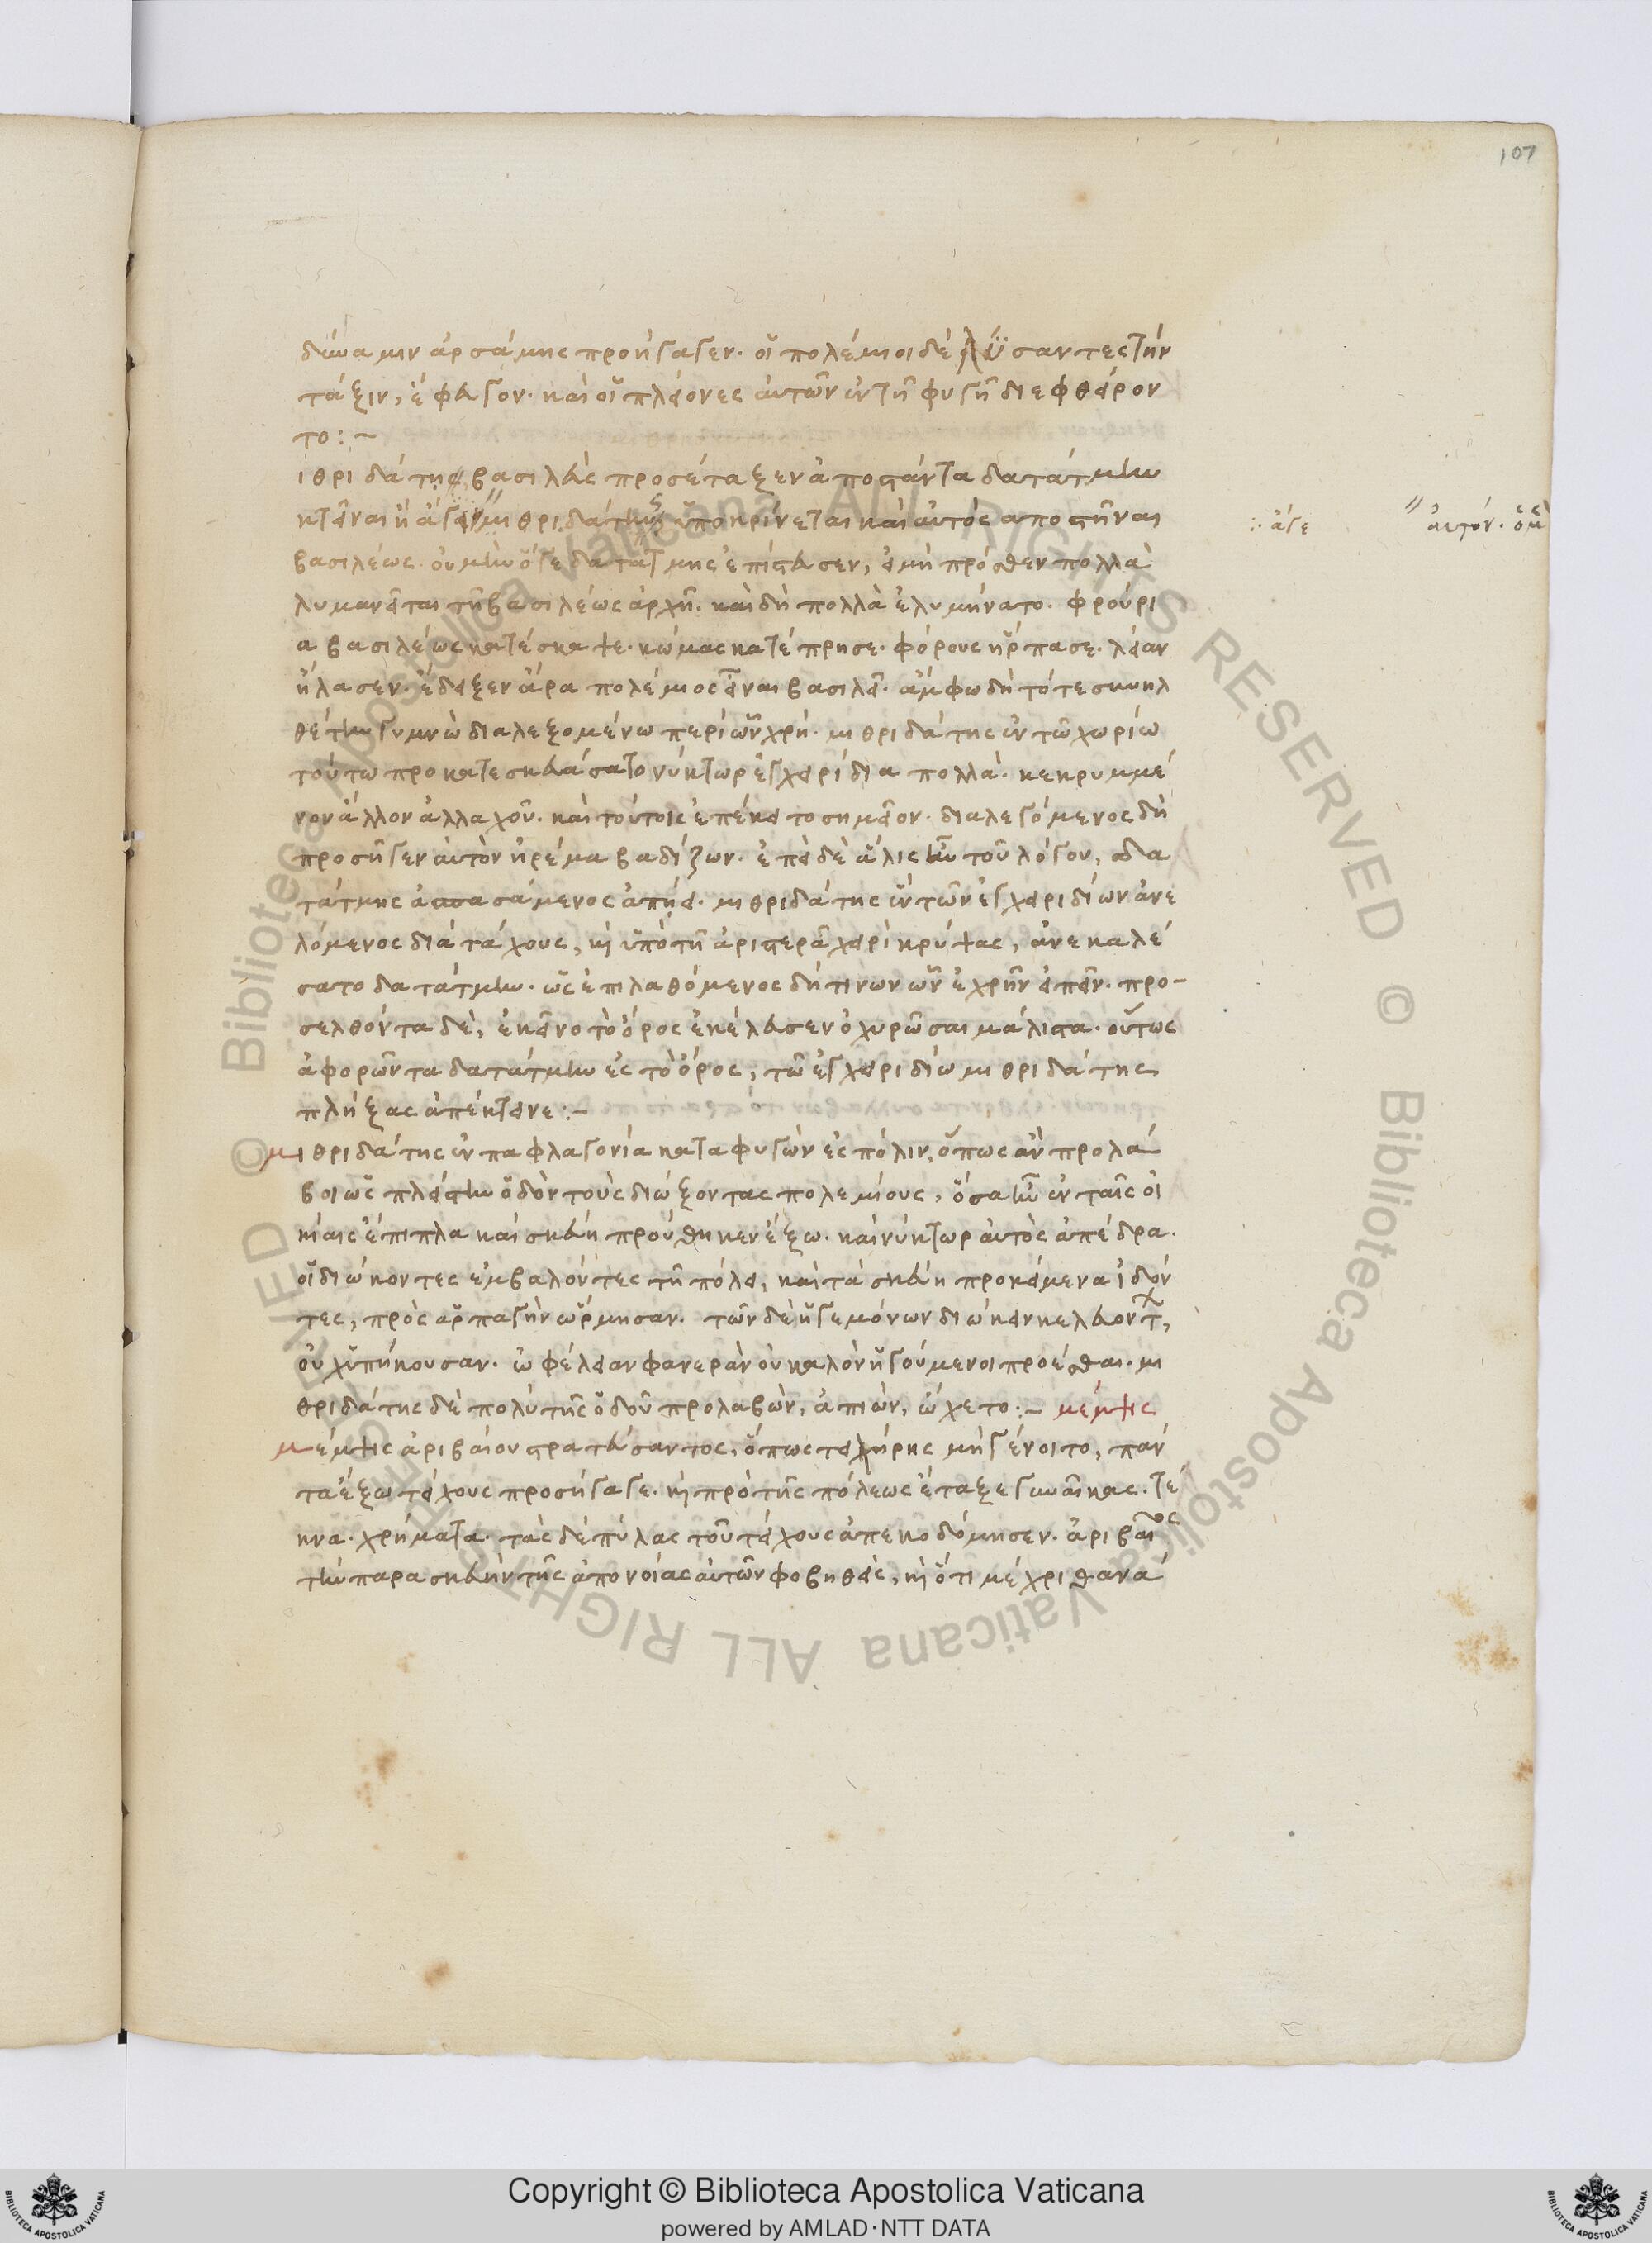 107
δύναμιν ἀρσάμης προήγαγεν. οἱ πολέμιοι δὲ λύσαντες τὴν
τάξιν, ἔφευγον. καὶ οἱ πλείονες αὐτῶν ἐν τῇ φυγῇ διεφθείρον
το:-
ιθριδάτης βασιλεὺς προσέταξεν ἀποστάντα δατάμην
κτεῖναι ἢ ἄγειν μιθριδάτης ὑποκρίνεται καὶ αὐτὸς αποστῆναι
βασιλέως. οὐ μὴν ὅγε δατάμης ἐπίστευσεν, εἰ μὴ πρόσθεν πολλὰ
λυμανεῖται τῇ βασιλέως ἀρχῇ. καὶ δὴ πολλὰ ἐλυμήνατο. φρούρι
α βασιλέως κατέσκαψε. κώμας κατέπρησε. φόρους ἥρπασε. λείαν
ἤλασεν. ἔδειξεν ἄρα πολέμιος εἶναι βασιλεῖ. ἄμφω δὴ τότε συνηλ
θέτην γυμνὼ διαλεξομένω περὶ ὧν χρή. μιθριδάτης ἐν τῶ χωρίω
τούτω προκατεσκευάσατο νύκτωρ ἐγχειρίδια πολλά. κεκρυμμέ
νον ἄλλον ἀλλαχοῦ. καὶ τούτοις ἐπέκειτο σημεῖον. διαλεγόμενος δὴ
προσῆγεν αὐτὸν ἠρέμα βαδίζων. ἐπεὶ δὲ ἅλις ἦν τοῦ λόγου, ὁ δα
τάμης ἀσπασάμενος ἀπῄει. μιθριδάτης ἓν τῶν ἐγχειριδίων ἀνε
λόμενος διὰ τάχους, καὶ ὑπὸ τῇ ἀριστερᾶ χειρὶ κρύψας, ἀνεκαλέ
σατο δατάμην. ὡς ἐπιλαθόμενος δή τινων ὧν ἐχρῆν εἰπεῖν. προ-
σελθόντα δὲ, ἐκεῖνο τὸ ὄρος ἐκέλευσεν ὀχυρῶσαι μάλιστα. οὕτως
ἀφορῶντα δατάμην ἐς τὸ ὄρος, τῶ ἐγχειριδίω μιθριδάτης
πλήξας ἀπέκτεινε:-
μιθριδάτης ἐν παφλαγονία καταφυγὼν ἐς πόλιν, ὅπως ἂν προλά
βοι ὡς πλείστην ὁδὸν τοὺς διώξοντας πολεμίους, ὅσα ἦν ἐν ταῖς οἰ
κίαις ἔπιπλα καὶ σκεύη προύθηκεν ἔξω. καὶ νύκτωρ αὐτὸς ἀπέδρα.
οἱ διώκοντες ἐμβαλόντες τῇ πόλει, καὶ τὰ σκεύη προκείμενα ἰδόν
τες, πρὸς ἁρπαγὴν ὥρμησαν. τῶν δὲ ἡγεμόνων διώκειν κελευόντ,
οὐχ ὑπήκουσαν. ὠφέλειαν φανερὰν οὐ καλὸν ἡγούμενοι προέσθαι. μι
θριδάτης δὲ πολὺ τῆς ὁδοῦ προλαβὼν, ἀπιὼν, ὤχετο:- μέμψις
μέμψις ἀριβαίου στρατεύσαντος, ὅπως τειχήρης μὴ γένοιτο, πάν
τα ἔξω τείχους προσήγαγε. καὶ πρὸ τῆς πόλεως ἔταξε γυναῖκας. τέ
κνα. χρήματα. τὰς δὲ πύλας τοῦ τείχους ἀπεκοδόμησεν. ἀριβαῖος
τὴν παρασκευὴν τῆς ἀπονοίας αὐτῶν φοβηθεὶς, καὶ ὅτι μέχρι θανά
ἄγε
αὐτόν.
Copyright © Biblioteca Apostolica Vaticana
powered by AMLAD·NTT DATA
© Biblioteca Apostolica Vaticana ALL RIGHTS RESERVED © Biblioteca Apostolica Vaticana ALL RIGHTS RESERVED
BIBLIOTECA APOSTOLICA VATICANA
BIBLIOTECA APOSTOLICA VATICANA